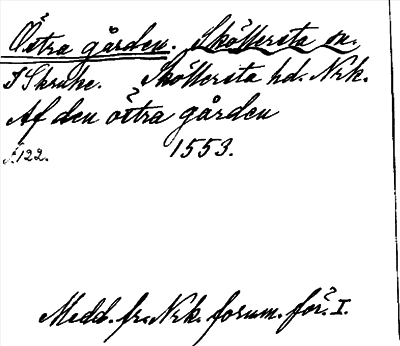 Östra gården. Sköllersta sn.
I Skruke. Sköllersta hd. Nrk.
Af den östra gården
s. 122. 1553.
Medd. fr. Nrk. fornm. för. I.